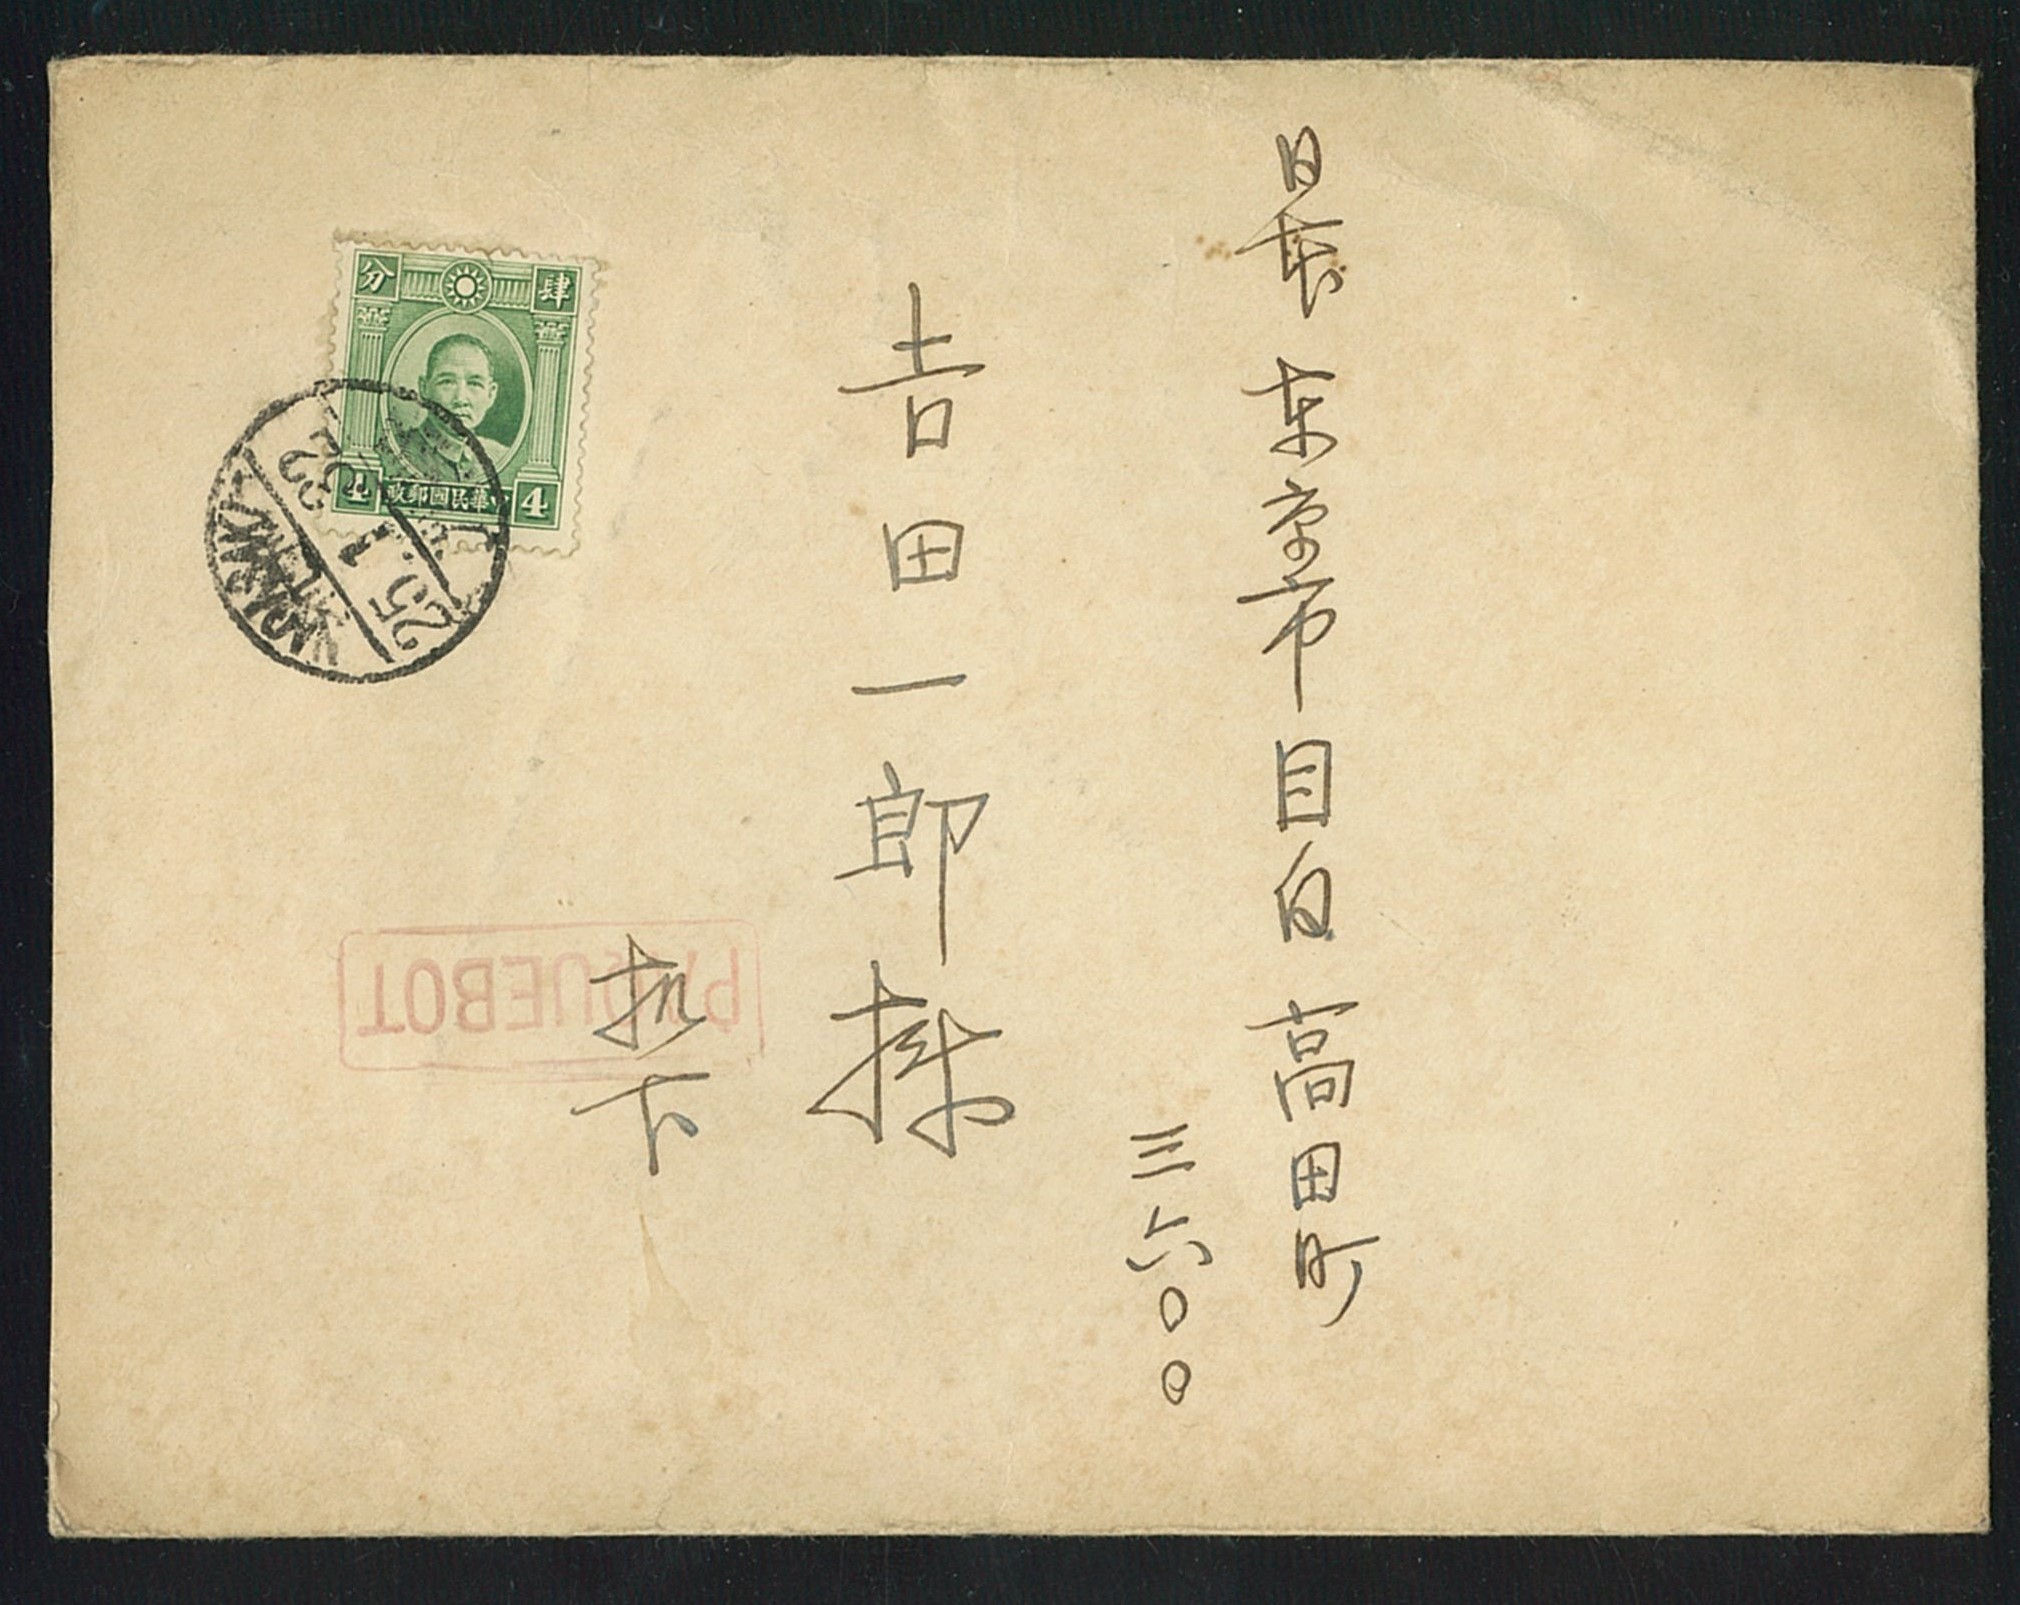 日本 東京市 目白 高田町
三六〇〇
吉田一郎様
机下
分 肆
4 中華民國郵政 4
25. 1 32
PAQUEBOT